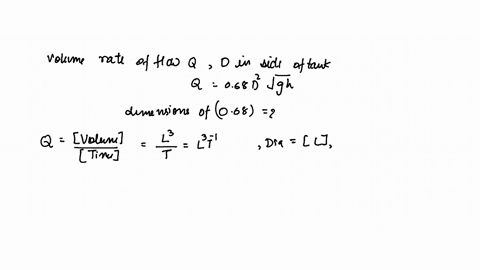 volume rate of flow Q , D in side of tank
Q = 0.68 D² √gh
dimensions of (0.68) = ?
Q = [Volume] / [Time] = L³ / T = L³T⁻¹ , Dia = [L],